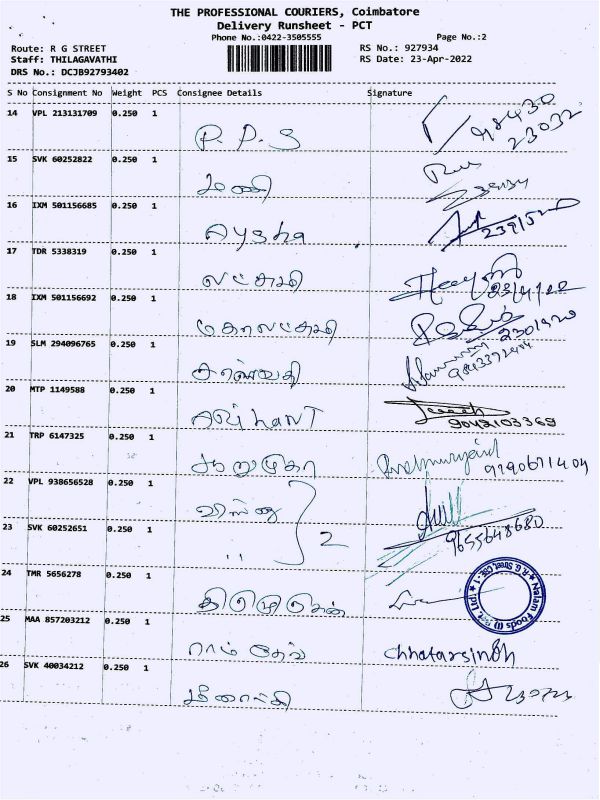 THE PROFESSIONAL COURIERS, Coimbatore
Delivery Runsheet - PCT
Phone No.:0422-3505555 Page No.:2
Route: R G STREET RS No.: 927934
Staff: THILAGAVATHI RS Date: 23-Apr-2022
DRS No.: DCJB92793402
S No Consignment No Weight PCS Consignee Details Signature
14 VPL 213131709 0.250 1
P.P.S 98430
23032
15 SVK 60252822 0.250 1
மணி
16 IXM 501156685 0.250 1
Aysha
17 TDR 5338319 0.250 1
லட்சுமி
18 IXM 501156692 0.250 1
மகாலட்சுமி
19 SLM 294096765 0.250 1
20 MTP 1149588 0.250 1
ARihANT 9042103369
21 TRP 6147325 0.250 1
ஆறுமுகா
22 VPL 938656528 0.250 1
2
9655648680
23 SVK 60252651 0.250 1
" 
24 TMR 5656278 0.250 1
Nalam Foods (I) Pvt. Ltd. R.G. Street, CBE - 1
25 MAA 857203212 0.250 1
ராம் தேவ் Chhatarsinh
26 SVK 40034212 0.250 1
மீனாட்சி